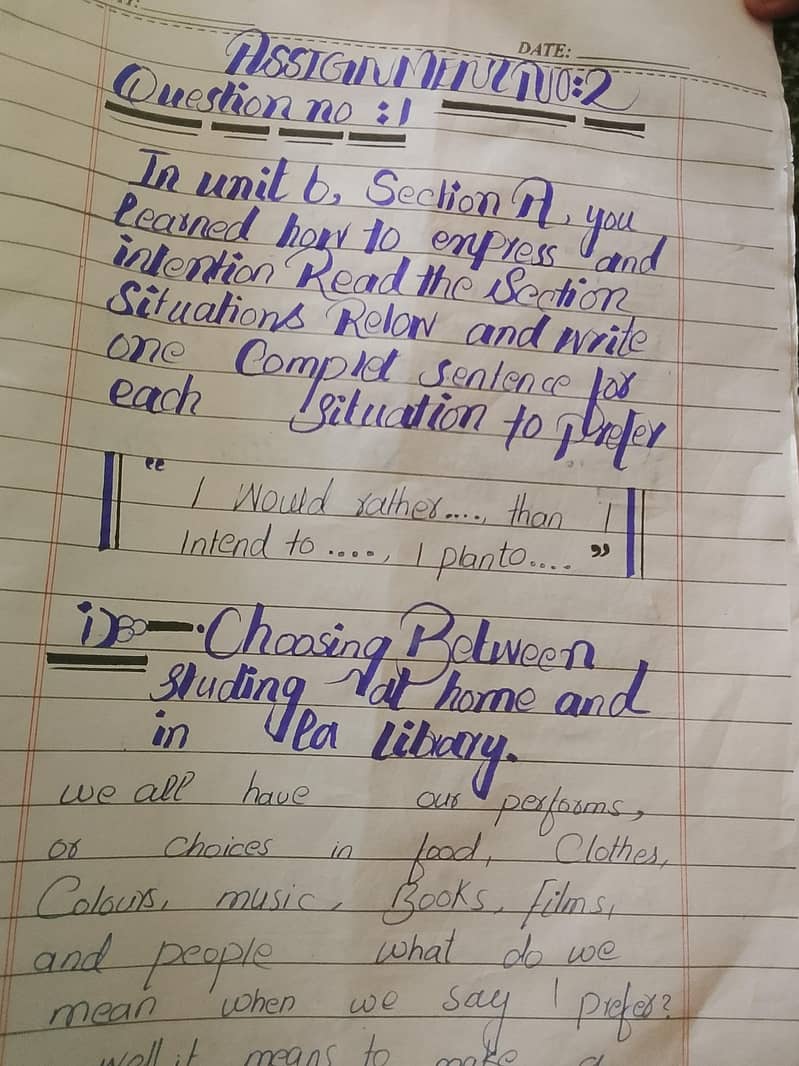 DATE:
ASSIGNMENT NO:2
Question no :1
In unit 6, Section A, you
learned how to enpress and
intention Read the Section
Situations Relow and write
one Compled sentence for
each situation to prefer
“ I would rather...., than I
Intend to ...., I planto.... ”
i) Choosing Between
studing at home and
in la library.
we all have our performs,
or choices in food, Clothes,
Colours, music, Books, films,
and people what do we
mean when we say I prefer?
well it means to make a